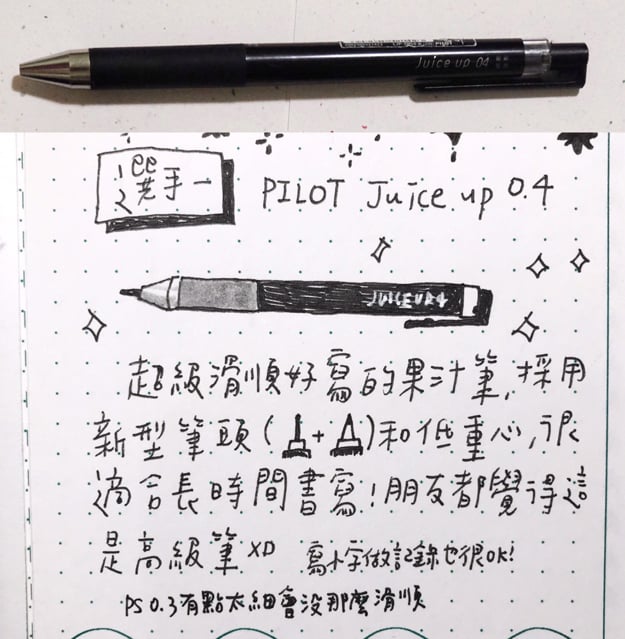 Juice up 04
選手一
PILOT Juice up 0.4
JUICE UP 4
超級滑順好寫的果汁筆,採用
新型筆頭(+)和低重心,很
適合長時間書寫!朋友都覺得這
是高級筆XD 寫小字做記錄也很OK!
PS 0.3有點太細會沒那麼滑順